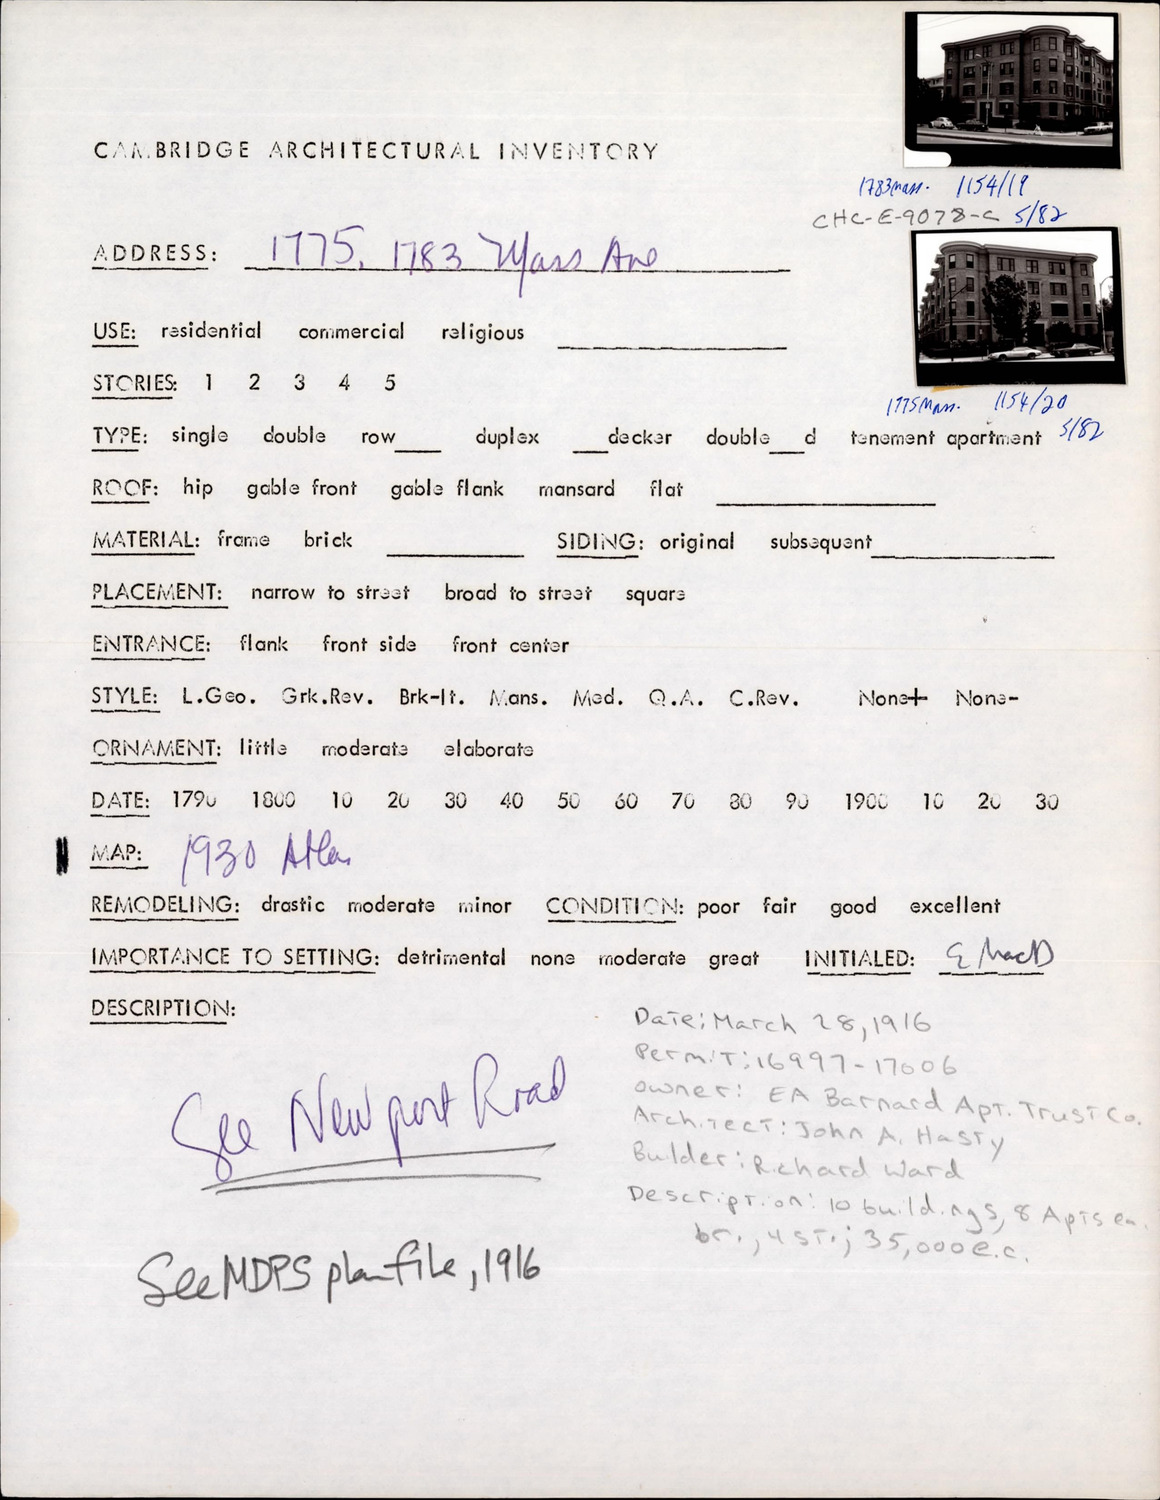 CAMBRIDGE ARCHITECTURAL INVENTORY
1783 Mass. 1154/19
CHC-E-9078-C 5/82
ADDRESS: 1775, 1783 Mass Ave
USE: residential commercial religious
STORIES: 1 2 3 4 5
1775 Mass. 1154/20
5/82
TYPE: single double row___ duplex ___decker double___d tenement apartment
ROOF: hip gable front gable flank mansard flat
MATERIAL: frame brick SIDING: original subsequent
PLACEMENT: narrow to street broad to street square
ENTRANCE: flank front side front center
STYLE: L.Geo. Grk.Rev. Brk-It. Mans. Med. Q.A. C.Rev. None+ None-
ORNAMENT: little moderate elaborate
DATE: 1790 1800 10 20 30 40 50 60 70 80 90 1900 10 20 30
MAP: 1930 Atlas
REMODELING: drastic moderate minor CONDITION: poor fair good excellent
IMPORTANCE TO SETTING: detrimental none moderate great INITIALED: E MacD
DESCRIPTION:
Date: March 28, 1916
Permit: 16997-17006
Owner: EA Barnard Apt. Trust Co.
Architect: John A. Hasty
Builder: Richard Ward
Description: 10 buildings, 8 Apts ea.
br., 4 st.; 35,000 e.c.
See Newport Road
See MDPS plan file, 1916